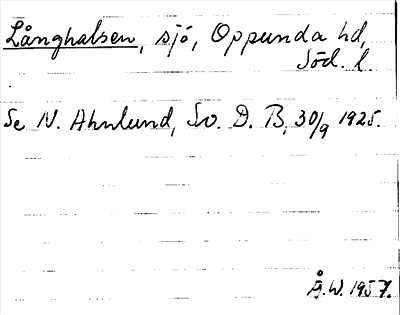 Långhalsen, sjö, Oppunda hd,
Söd. l.
Se N. Ahnlund, Sv. D. B, 30/9 1925.
Å.W. 1957.